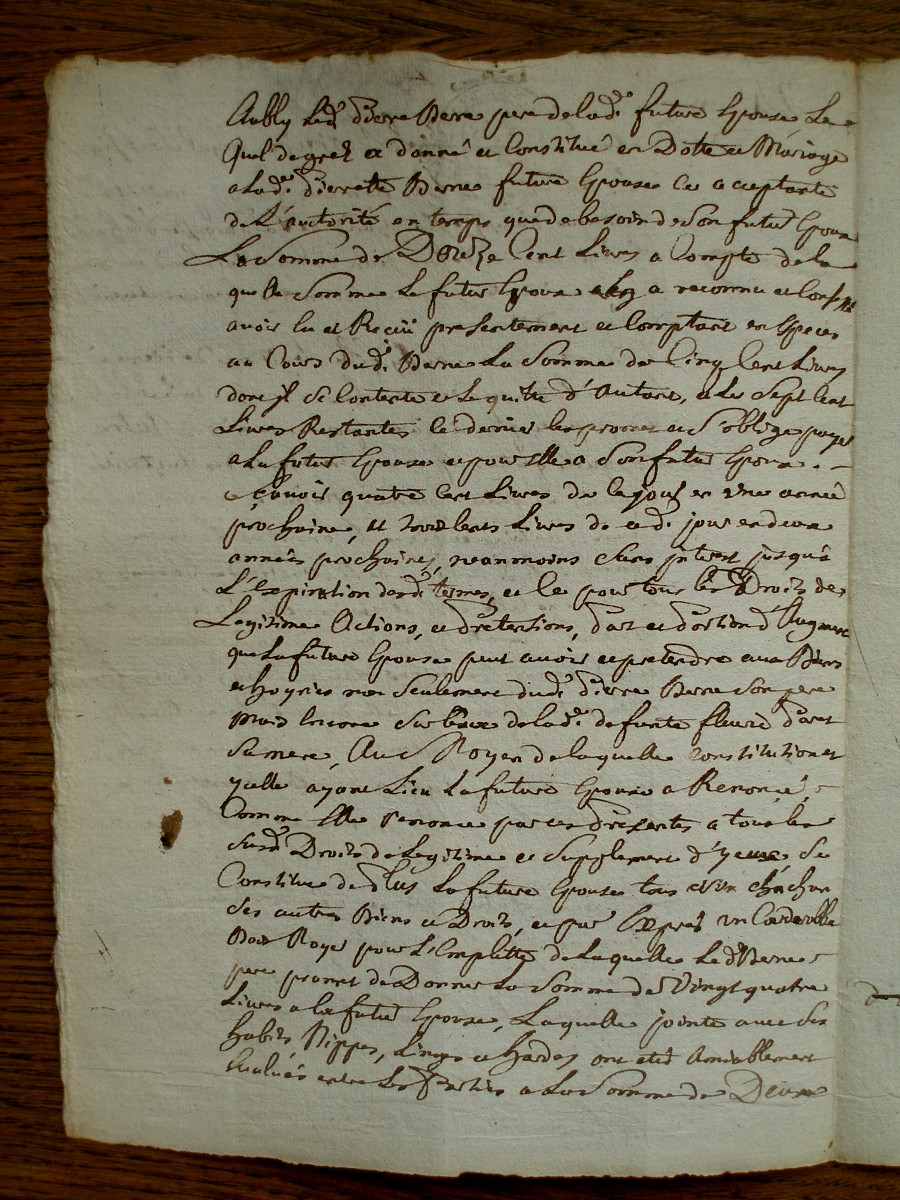 Aubly led. Pierre Berne pere de lad.e future Epouse Le
Quel de gréz a donné et Constitué en Dotte et Mariage
a lad.e Pierrette Berne future Epouse Ce acceptante
de L'autorité en temps que de besoin de Son futur Epoux
La Somme de Douze Cent Livres a Compte de la
quelle Somme Le futur Epoux a reconnu et Confessé
avoir Eu et Reçeü presentement et Comptant en Especes
au Cours dud.t Berne La Somme de Cinq Cent Livres
dont jl Se Contente et Le quitte d'Autant, et Les Sept Cent
Livres Restantes le dernier les promet et S'oblige payer
a La future Epouse et pour Elle a Son futur Epoux
Sçavoir quatre Cent Livres de Ce jour en une année
prochaine, et trois Cents Livres de ced.t jour en deux
années prochaines, neanmoins Sans jnterest jusqu'a
L'expiration desd.ts termes, et Ce pour tous les Droits de
Legitime Actions, et Pretentions, Part et Portion d'Augment
que La future Epouse peut avoir et pretendre aux Biens
et hoyries non Seulement dud.t Pierre Berne Son pere
mais Encore Sur Ceux de lad.e defunte fleurie
Sa mere, Au Moyen de laquelle Constitution et
ycelle ayant Lieu La future Epouse a Renoncé,
Comme Elle renonce par ces Presentes a tous les
Susd.ts Droits de Legitime et Supplement d'yceux Se
Constitue de Plus La future Epouse tous et un chacun
Ses autres Biens et Droits, et par Exprés un Garderobbe
Bois Noyer pour L'Emplette de Laquelle Led.t Berne
pere promet de Donner La Somme de Vingt quatre
Livres a la future Epouse, Laquelle jointe avec Ses
habits, Nippes, Linges et hardes, ont eté Amiablement
Evalués entre Les Parties a La Somme de Deux